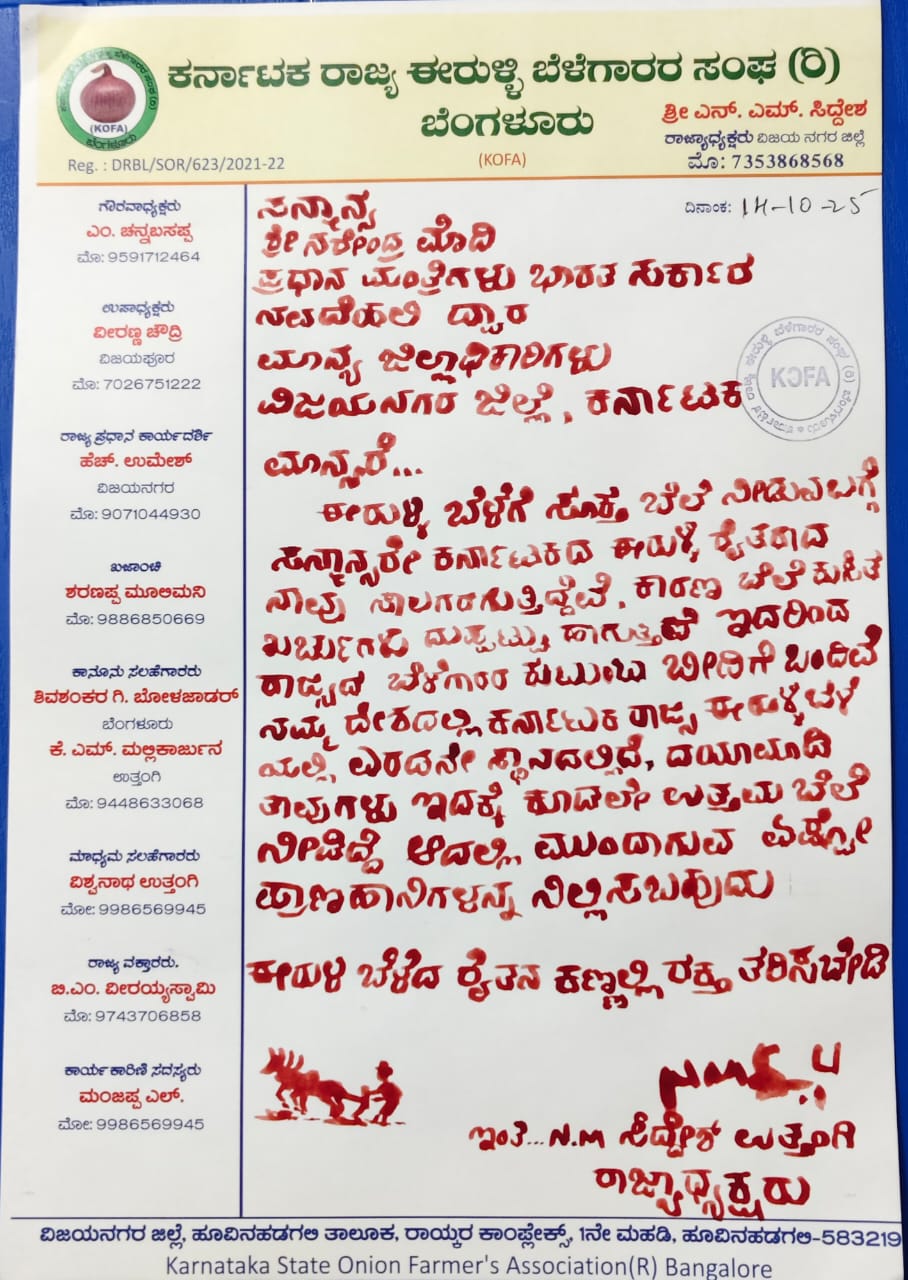 ಕರ್ನಾಟಕ ರಾಜ್ಯ ಈರುಳ್ಳಿ ಬೆಳೆಗಾರರ ಸಂಘ (ರಿ)
ಬೆಂಗಳೂರು
(KOFA)
(KOFA)
ಬೆಂಗಳೂರು
Reg. : DRBL/SOR/623/2021-22
ಶ್ರೀ ಎನ್. ಎಮ್. ಸಿದ್ದೇಶ
ರಾಜ್ಯಾಧ್ಯಕ್ಷರು ವಿಜಯ ನಗರ ಜಿಲ್ಲೆ
ಮೊ: 7353868568
ಗೌರವಾಧ್ಯಕ್ಷರು
ಎಂ. ಚನ್ನಬಸಪ್ಪ
ಮೊ: 9591712464
ಉಪಾಧ್ಯಕ್ಷರು
ವೀರಣ್ಣ ಚೌದ್ರಿ
ವಿಜಯಪೂರ
ಮೊ: 7026751222
ರಾಜ್ಯ ಪ್ರಧಾನ ಕಾರ್ಯದರ್ಶಿ
ಹೆಚ್. ಉಮೇಶ್
ವಿಜಯನಗರ
ಮೊ: 9071044930
ಖಜಾಂಚಿ
ಶರಣಪ್ಪ ಮೂಲಿಮನಿ
ಮೊ: 9886850669
ಕಾನೂನು ಸಲಹೆಗಾರರು
ಶಿವಶಂಕರ ಗಿ. ಬೋಳಜಾಡರ್
ಬೆಂಗಳೂರು
ಕೆ. ಎಮ್. ಮಲ್ಲಿಕಾರ್ಜುನ
ಉತ್ತಂಗಿ
ಮೊ: 9448633068
ಮಾಧ್ಯಮ ಸಲಹೆಗಾರರು
ವಿಶ್ವನಾಥ ಉತ್ತಂಗಿ
ಮೋ: 9986569945
ರಾಜ್ಯ ವಕ್ತಾರರು.
ಬಿ.ಎಂ. ವೀರಯ್ಯಸ್ವಾಮಿ
ಮೊ: 9743706858
ಕಾರ್ಯಕಾರಿಣಿ ಸದಸ್ಯರು
ಮಂಜಪ್ಪ ಎಲ್.
ಮೋ: 9986569945
ದಿನಾಂಕ: 14-10-25
ಸನ್ಮಾನ್ಯ
ಶ್ರೀ ನರೇಂದ್ರ ಮೊದಿ
ಪ್ರಧಾನ ಮಂತ್ರಿಗಳು ಭಾರತ ಸರ್ಕಾರ
ನವದೆಹಲಿ ದ್ವಾರ
ಮಾನ್ಯ ಜಿಲ್ಲಾಧಿಕಾರಿಗಳು
ವಿಜಯನಗರ ಜಿಲ್ಲೆ, ಕರ್ನಾಟಕ
KOFA
ಮಾನ್ಯರೆ...
ಈರುಳ್ಳಿ ಬೆಳೆಗೆ ಸೂಕ್ತ ಬೆಲೆ ನೀಡುವ ಬಗ್ಗೆ
ಸನ್ಮಾನ್ಯರೇ ಕರ್ನಾಟಕದ ಈರುಳ್ಳಿ ರೈತರಾದ
ನಾವು ಸಾಲಗರರಗುತ್ತಿದ್ದೆವೆ, ಕಾರಣ ಬೆಲೆ ಕುಸಿತ
ಖರ್ಚುಗಳು ದುಪ್ಪಟ್ಟು ಹಾಗುತ್ತಿವೆ ಇದರಿಂದ
ರಾಜ್ಯದ ಬೆಳೆಗಾರರ ಕುಟುಂಬ ಬೀದಿಗೆ ಬಂದಿವೆ
ನಮ್ಮ ದೇಶದಲ್ಲಿ ಕರ್ನಾಟಕ ರಾಜ್ಯ ಈರುಳ್ಳಿ ಬೆಳೆ
ಯಲ್ಲಿ ಎರಡನೇ ಸ್ಥಾನದಲ್ಲಿದೆ, ದಯಾಮಾಡಿ
ತಾವುಗಳು ಇದಕ್ಕೆ ಕೂಡಲೇ ಉತ್ತಮ ಬೆಲೆ
ನೀಡಿದ್ದೆ ಆದಲ್ಲಿ ಮುಂದಾಗುವ ಏಷ್ಟೋ
ಪ್ರಾಣಹಾನಿಗಳನ್ನ ನಿಲ್ಲಿಸಬಹುದು
ಈರುಳಿ ಬೆಳೆದ ರೈತನ ಕಣ್ಣಲ್ಲಿ ರಕ್ತ ತರಿಸಬೇಡಿ
ಇಂತಿ... N.M ಸಿದ್ದೇಶ್ ಉತ್ತಂಗಿ
ರಾಜ್ಯಾಧ್ಯಕ್ಷರು
ವಿಜಯನಗರ ಜಿಲ್ಲೆ, ಹೂವಿನಹಡಗಲಿ ತಾಲೂಕ, ರಾಯ್ಕರ ಕಾಂಪ್ಲೇಕ್ಸ್, 1ನೇ ಮಹಡಿ, ಹೂವಿನಹಡಗಲಿ-583219
Karnataka State Onion Farmer's Association(R) Bangalore